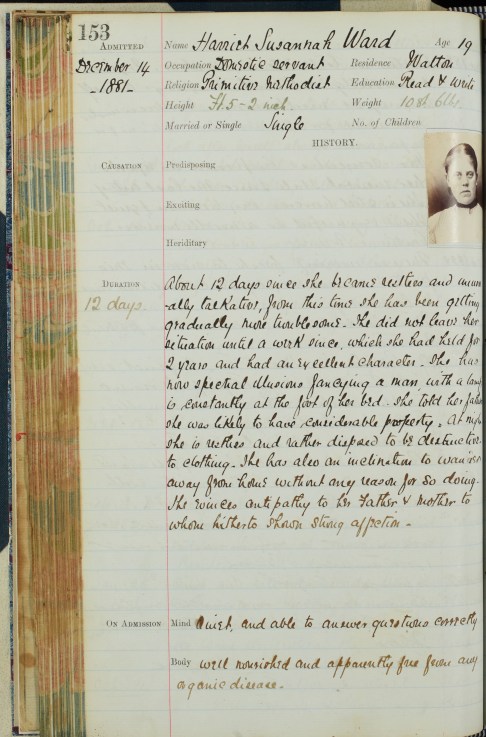 153
Admitted
December 14
-1881-
Name Harriet Susannah Ward Age 19
Occupation Domestic servant Residence Walton
Religion Primitive Methodist Education Read & write
Height Ft. 5-2 inch. Weight 10 st.
Married or Single Single No. of Children
HISTORY.
Causation Predisposing
Exciting
Heriditary
Duration
12 days.
About 12 days since she became restless and unusu
-ally talkative, from this time she has been getting
gradually more troublesome. She did not leave her
situation until a week since, which she had held for
2 years and had an excellent character. She has
now spectral illusions fancying a man with a
is constantly at the foot of her bed. She told her father
she was likely to have considerable property. At night
she is restless and rather disposed to be destructive
to clothing. She has also an inclination to wander
away from home without any reason for so doing.
She evinces antipathy to her Father & Mother to
whom hitherto shown strong affection -
On Admission Mind Quiet, and able to answer questions correctly
Body well nourished and apparently free from any
organic disease.